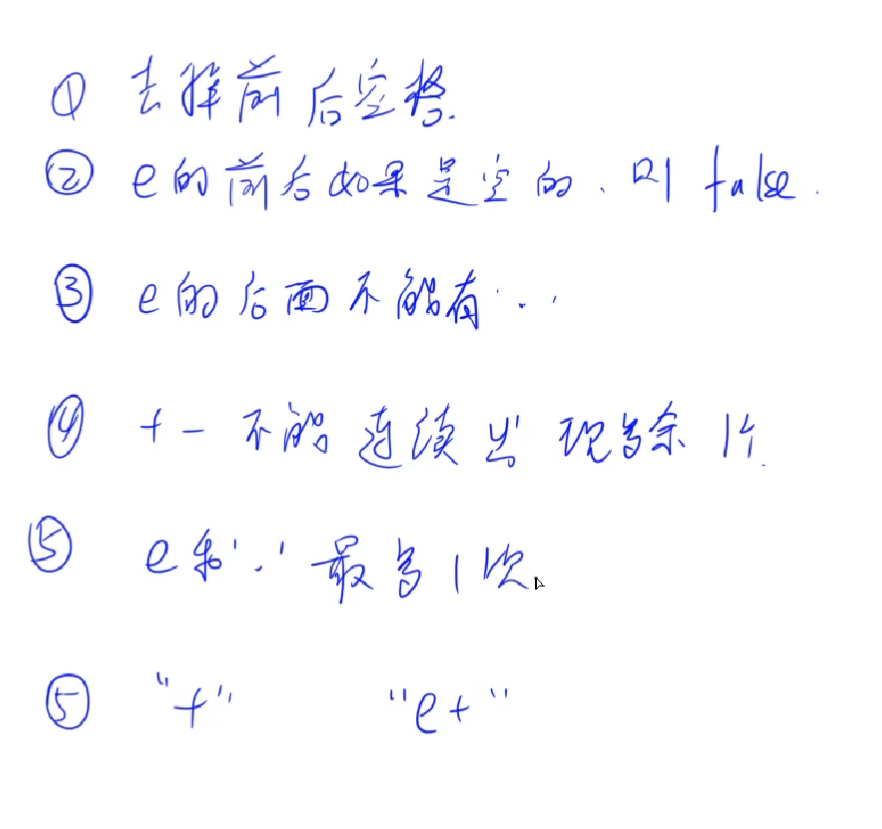 ① 去掉前后空格.
② e的前后如果是空的、则 false.
③ e的后面不能有'.'
④ + - 不能连续出现多余1个.
⑤ e和'.'最多1次
⑤ "+" "e+"